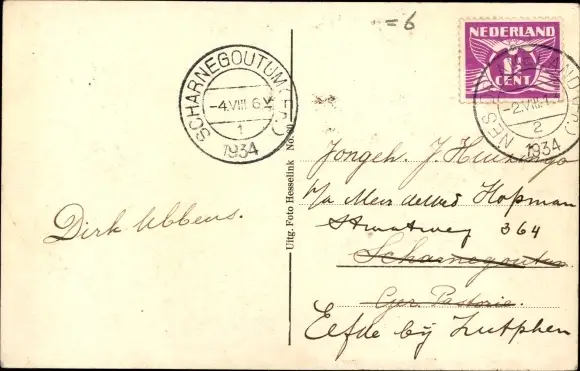 =6
NEDERLAND
1½
CENT
SCHARNEGOUTUM (FR.)
-4.VIII 6.V
1
1934
NES
-2.VIII
2
1934
Uitg. Foto Hesselink No.
Dirk Ubbens.
Jongeh. J. Huizinga
p/a Mevr de Wed Hopman
Straatweg 364
Scharnegoutum
Ger. Pastorie.
Eefde bij Zutphen